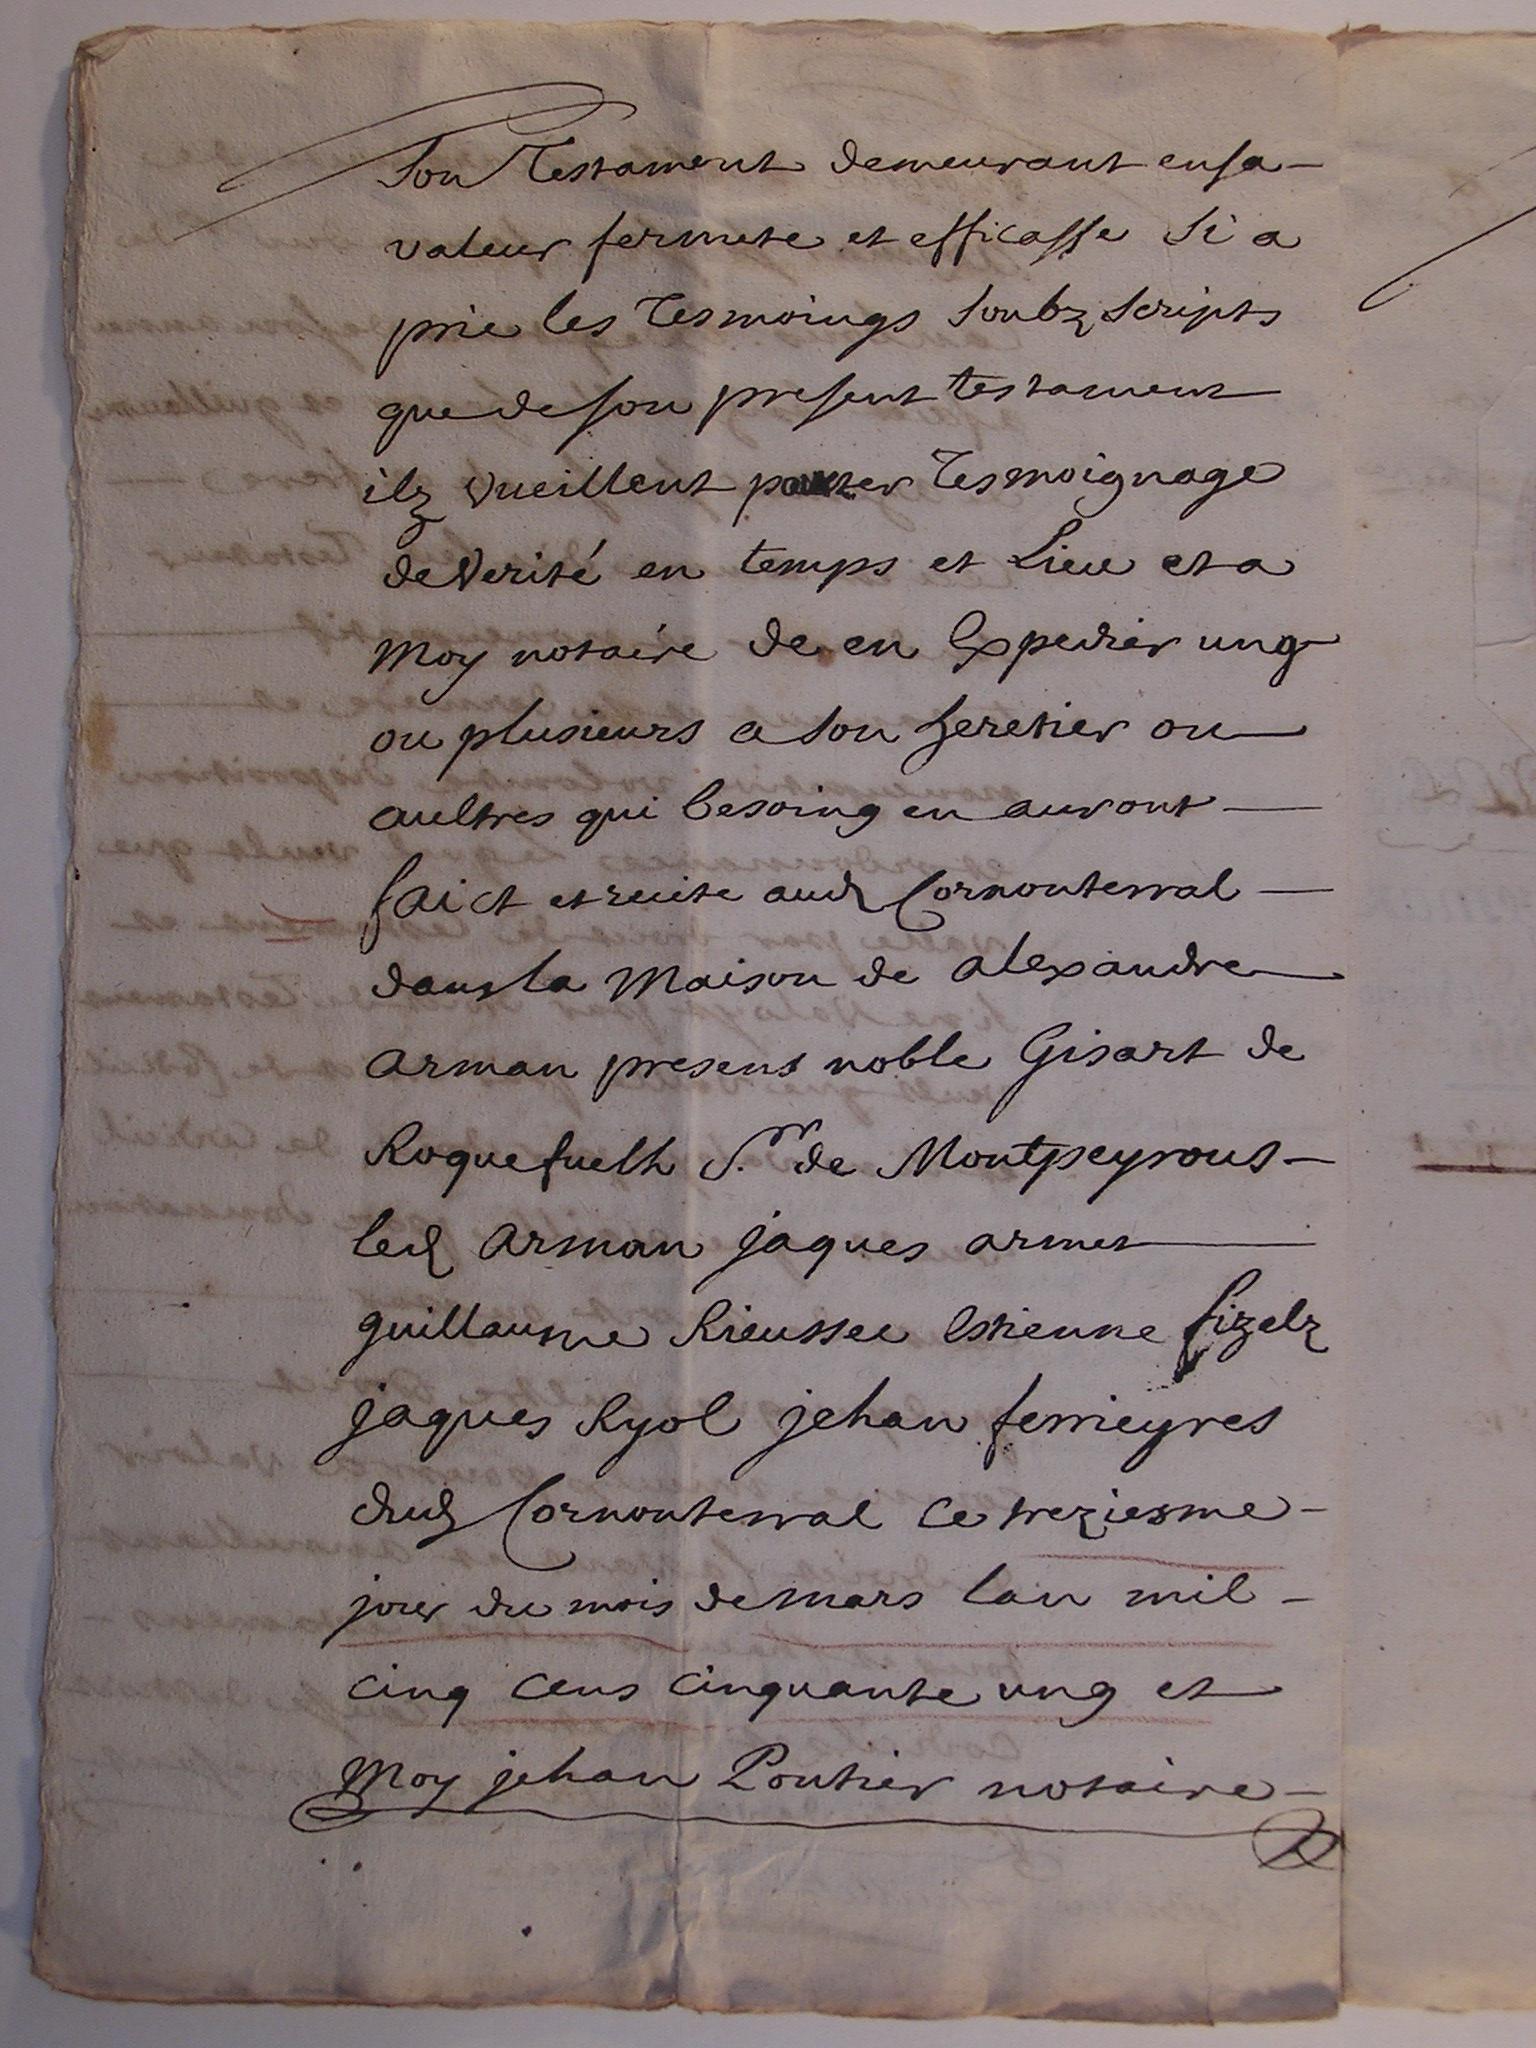 Son Testament demeurant en sa
valeur fermete et efficasse Si a
prie les Tesmoings Soubz Scripts
que de son present testament
ilz vueillent porter Tesmoignage
de Verité en temps et Lieu et a
Moy notaire de en Expedier ung
ou plusieurs a son heretier ou
aultres qui besoing en auront
faict et recite aud Cornonterral
dans la Maison de alexandre
arman presens noble Gisart de
Roquefuelh S.r de Montpeyrous
led Arman jaques armet
guillaume Rieussec Estienne fizelz
jaques Ryol jehan ferrieyres
dud Cornonterral Ce treziesme
jour du mois de mars Lan mil
cinq cens cinquante ung et
Moy jehan Poutier notaire